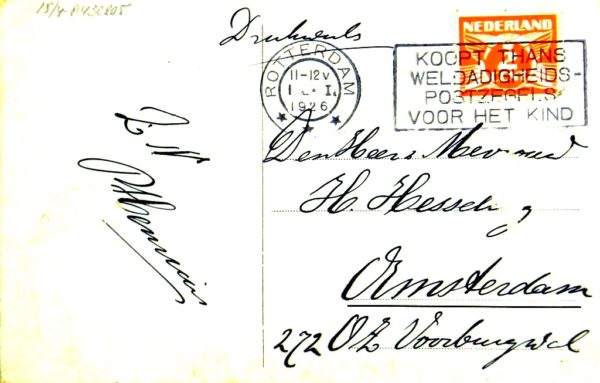 Drukwerk
NEDERLAND
ROTTERDAM
11-12V
1926
KOOPT THANS
WELDADIGHEIDS-
POSTZEGELS
VOOR HET KIND
Den Heer & Mevrouw
H. Hessch
Amsterdam
272 OZ Voorburgwal